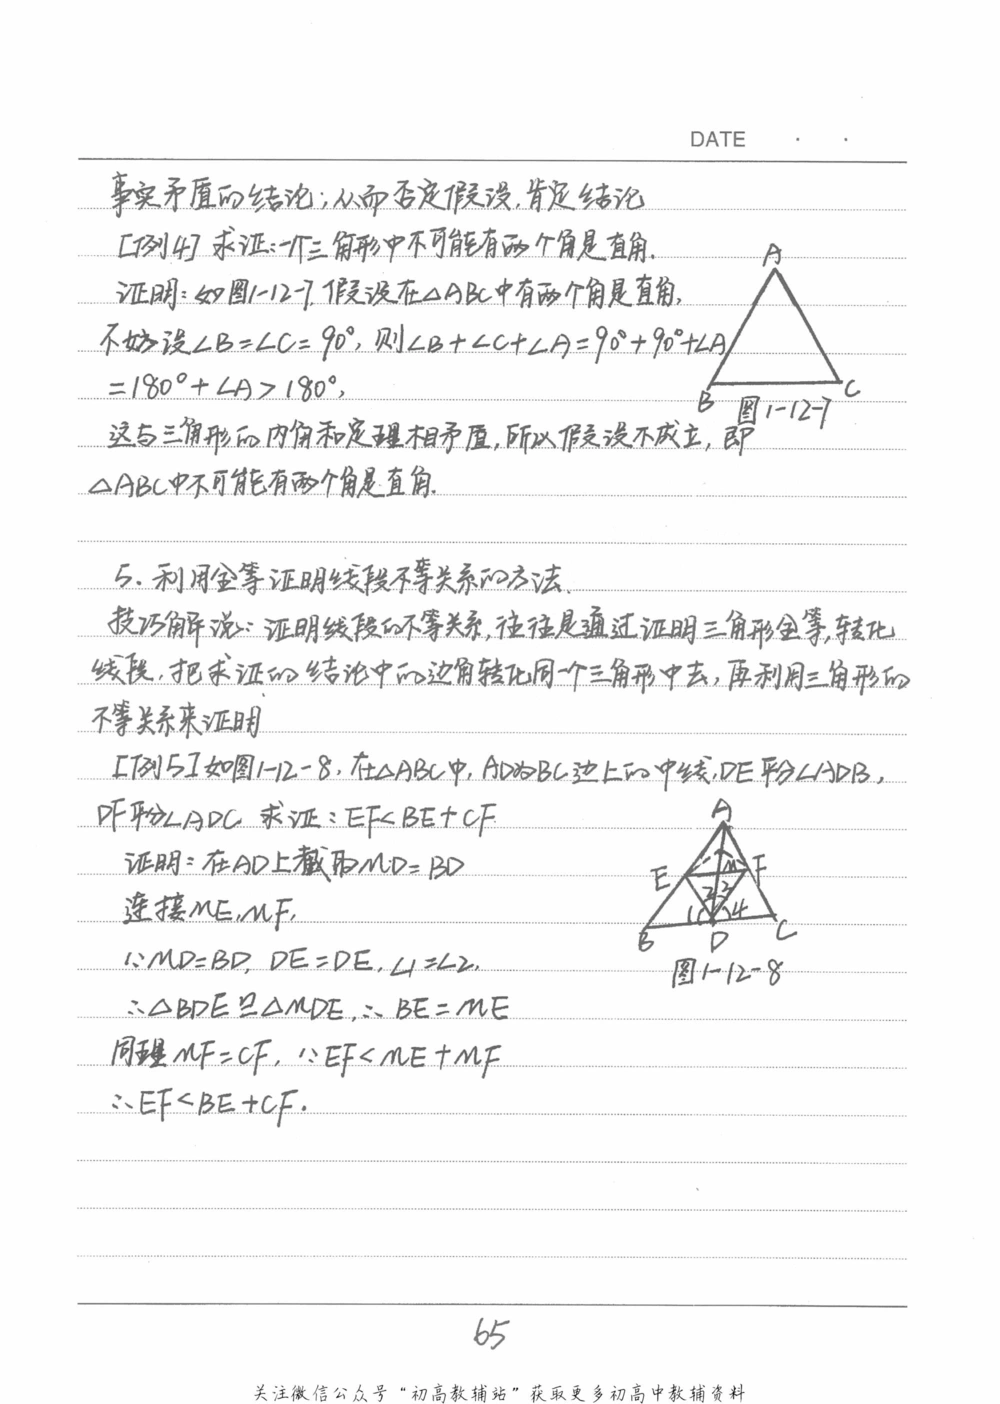 DATE · ·
事实矛盾的结论;从而否定假设,肯定结论
[例4] 求证:一个三角形中不可能有两个角是直角.
证明:如图1-12-7,假设在△ABC中有两个角是直角,
不妨设∠B=∠C=90°,则∠B+∠C+∠A=90°+90°+∠A
=180°+∠A>180°,
这与三角形的内角和定理相矛盾,所以假设不成立,即
△ABC中不可能有两个角是直角.
A
B
C
图1-12-7
5.利用全等证明线段不等关系的方法.
技巧解说:证明线段的不等关系,往往是通过证明三角形全等,转化
线段,把求证的结论中的边角转化同一个三角形中去,再利用三角形的
不等关系来证明
[例5]如图1-12-8,在△ABC中,AD为BC边上的中线,DE平分∠ADB,
DF平分∠ADC 求证:EF<BE+CF
证明:在AD上截取MD=BD
连接ME,MF,
∵MD=BD, DE=DE,∠1=∠2,
∴△BDE≌△MDE,∴BE=ME
同理MF=CF, ∵EF<ME+MF
∴EF<BE+CF.
A
E
M
F
1
2
3
4
B
D
C
图1-12-8
65
关注微信公众号“初高教辅站”获取更多初高中教辅资料